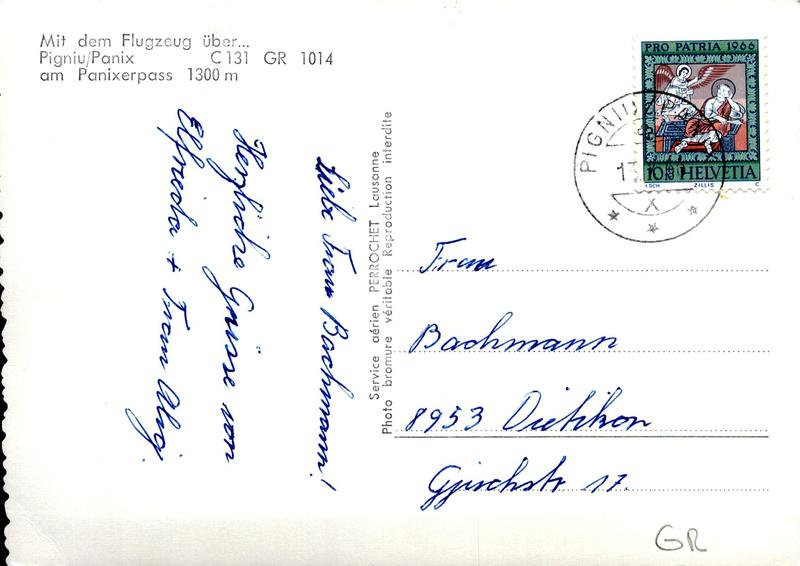 Mit dem Flugzeug über...
Pigniu/Panix C 131 GR 1014
am Panixerpass 1300 m
PRO PATRIA 1966
10+10 HELVETIA
ISCH ZILLIS C
PIGNIU
X
Liebe Frau Bachmann!
Herzliche Grüsse von
Elfrieda + Fram
Service aérien PERROCHET Lausanne
Photo bromure véritable Reproduction interdite
Frau
Bachmann
8953 Dietikon
17.
GR